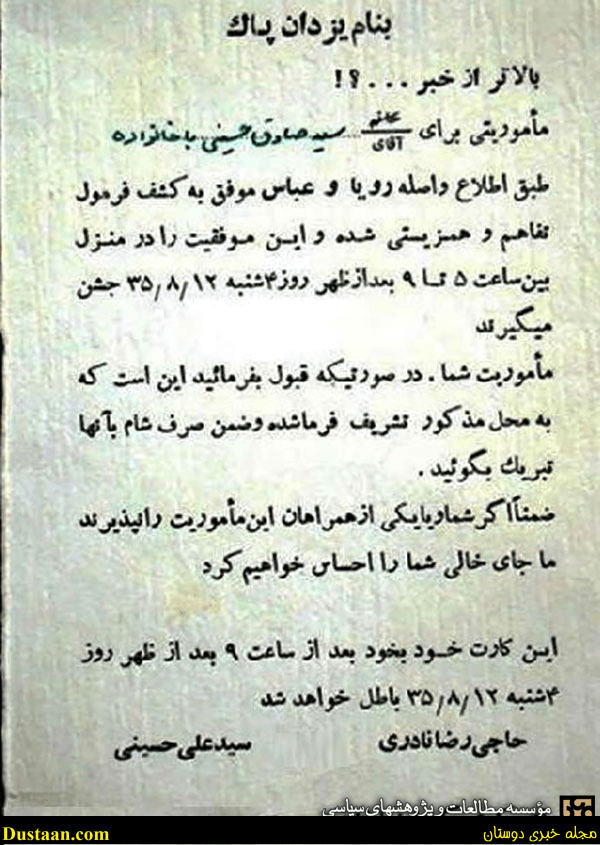 بنام یزدان پاك
بالاتر از خبر . . . ؟ !
مأموریتی برای خانم / آقای سید صادق حسینی باخانواده
طبق اطلاع واصله رویا و عباس موفق به کشف فرمول
تفاهم و همزیستی شده و این موفقیت را در منزل
بین ساعت ۵ تا ۹ بعدازظهر روز ۴شنبه ۳۵/۸/۱۲ جشن
میگیرند
مأموریت شما . در صورتیکه قبول بفرمائید این است که
به محل مذکور تشریف فرماشده وضمن صرف شام بآنها
تبریك بگوئید .
ضمناً اگر شما ریایکی ازهمراهان این مأموریت رانپذیرند
ما جای خالی شما را احساس خواهیم کرد
این کارت خود بخود بعد از ساعت ۹ بعد از ظهر روز
۴شنبه ۳۵/۸/۱۲ باطل خواهد شد
حاجی رضا نادری سید علی حسینی
مؤسسه مطالعات و پژوهشهای سیاسی
مجله خبری دوستان Dustaan.com